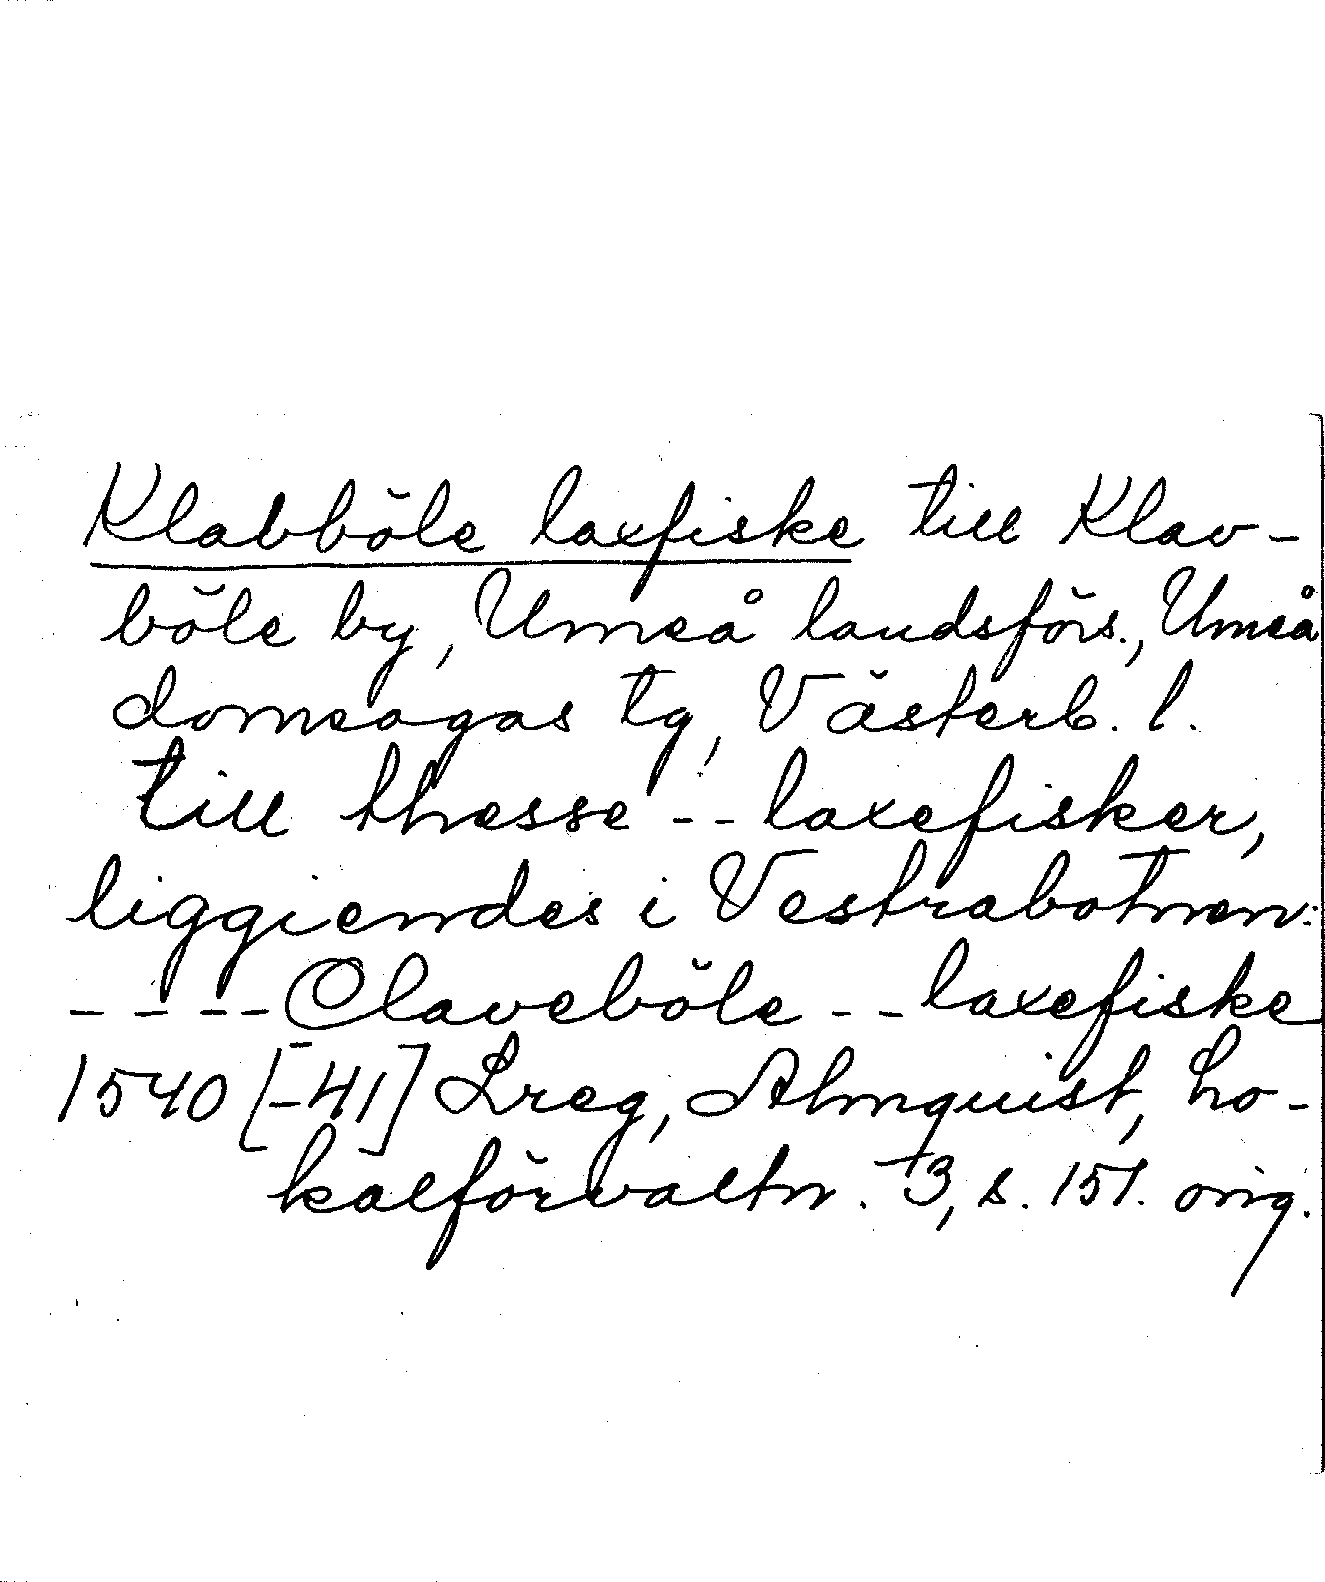 Klabböle laxfiske till Klav-
böle by, Umeå landsförs., Umeå
domsagas tg, Västerb. l.
till thesse -- laxefisker,
liggiendes i Vestrabotnen:
---- Claveböle -- laxefiske
1540 [-41] Lreg, Almquist, Lo-
kalförvaltn. 3, s. 151. orig.